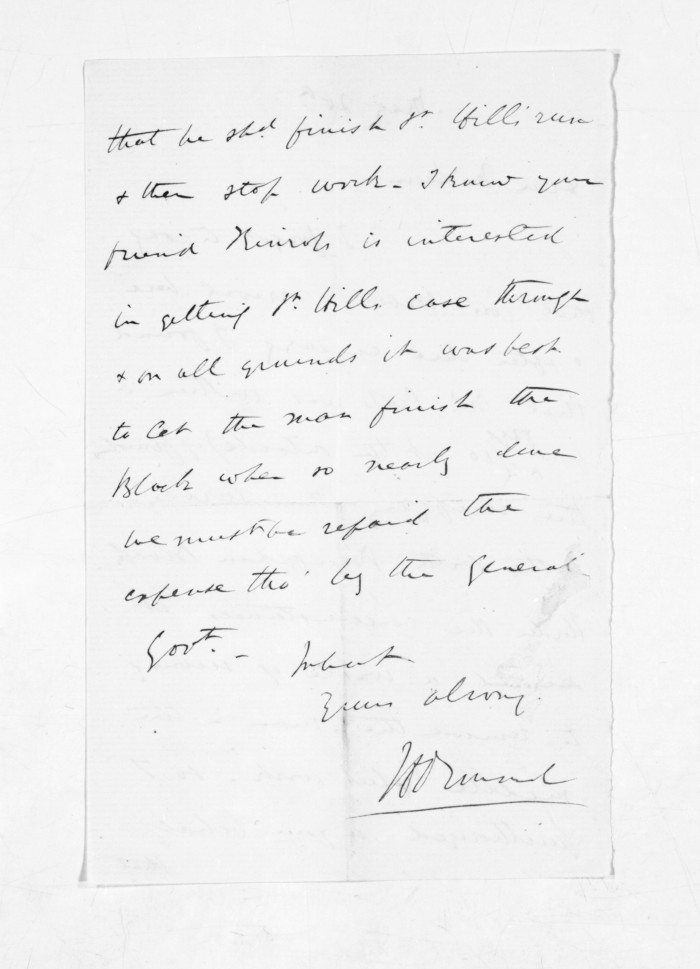 that he shd. finish St. Hill's run
& then stop work - I know your
friend Kinross is interested
in getting St. Hills case through
& on all grounds it was best
to let the man finish the
Block when so nearly done
we must be repaid the
expense tho' by the General
Govt. - In haste
Yours always
JD Ormond